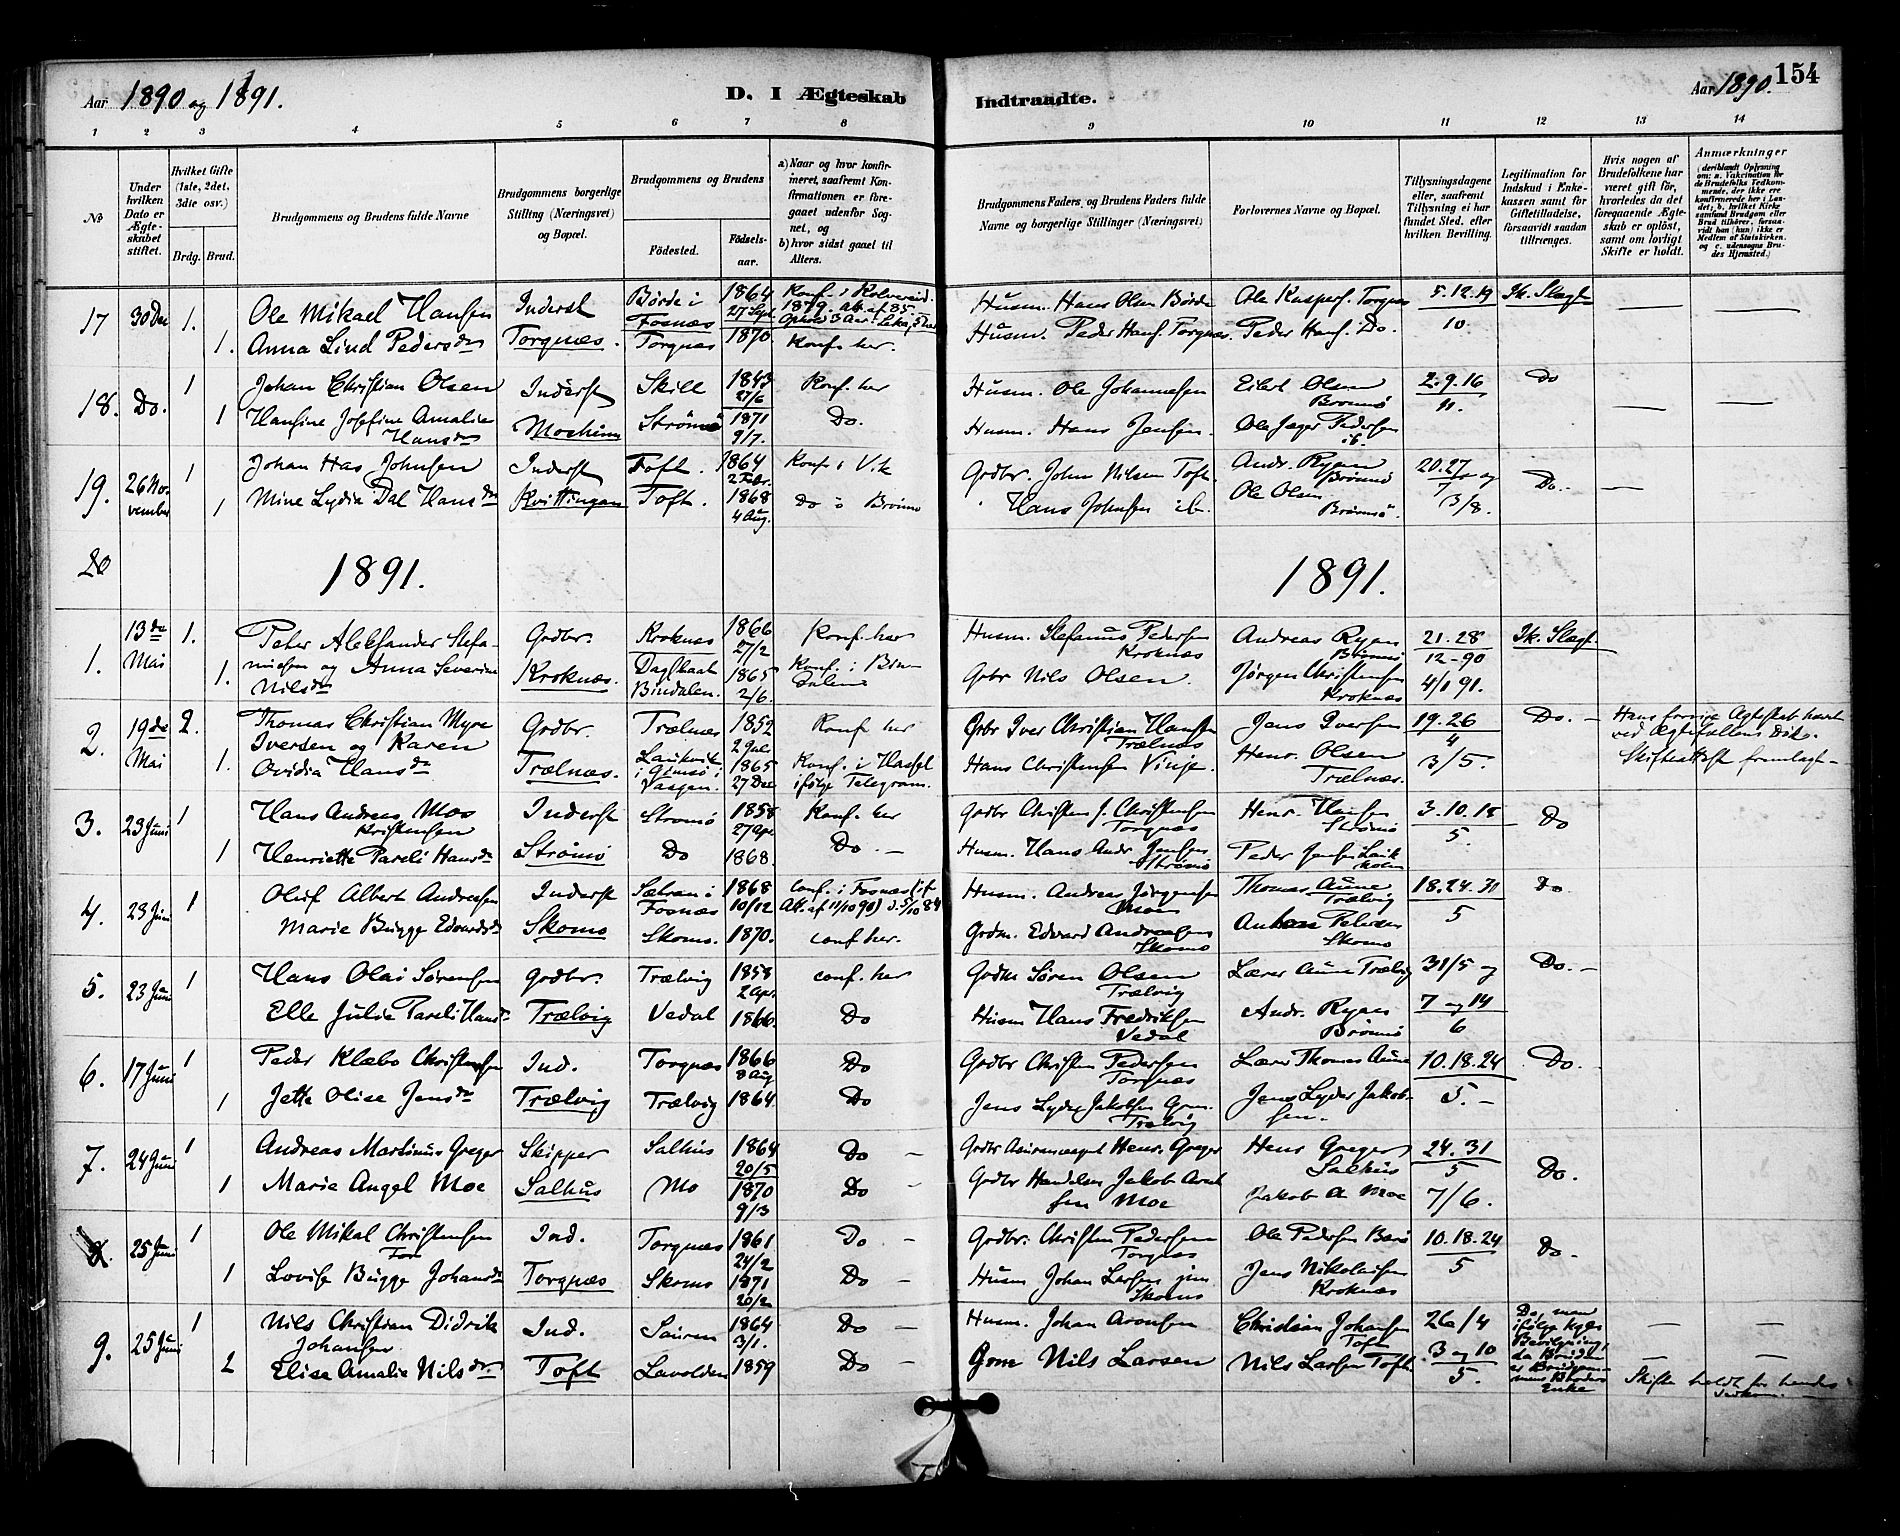 Aar 1890 og 1891.
D. I Ægteskab
Indtraadte.
Aar 1890.
154
1 2 3 4 5 6 7 8 9 10 11 12 13 14
No
Under hvilken Dato er Ægteskabet stiftet.
Hvilket Gifte (1ste, 2det, 3die osv.)
Brdg. Brud.
Brudgommens og Brudens fulde Navne
Brudgommens borgerlige Stilling (Næringsvei) og Bopæl.
Brudgommens og Brudens
Fødested.
Fødselsaar.
a) Naar og hvor konfirmeret, saafremt Konfirmationen er foregaaet udenfor Sognet, og
b) hvor sidst gaaet til Alters.
Brudgommens Faders og Brudens Faders fulde Navne og borgerlige Stillinger (Næringsvei)
Forlovernes Navne og Bopæl.
Tillysningsdagene eller, saafremt Tillysning ei har fundet Sted, efter hvilken Bevilling.
Legitimation for Indskud i Enkekassen samt for Giftetilladelse, forsaavidt saadan tiltrænges.
Hvis nogen af Brudefolkene har været gift før, hvorledes da det foregaaende Ægteskab er opløst, samt om lovligt Skifte er holdt.
Anmærkninger
(deriblandt Oplysning om: a. Vakcination for de Brudefolks Vedkommende, der ikke ere konfirmerede her i Landet; b. hvilket Kirkesamfund Brudgom eller Brud tilhører, forsaavidt han (hun) ikke er Medlem af Statskirken, og c. udensogns Brudes Hjemsted.)
17 30 Dec 1. Ole Mikael Hansen Inderst Børde i Fosnæs 1864 27 Sept. Konf. i Kolvereid 1879. Husm. Hans Olsen Børde Ole Kaspers. Torgnæs 5.12.19
1. Anna Lind Pedersdr Torgnæs. Torgnæs 1870 Konf. her. Husm. Peder Hans. Torgnæs. Peder Hans. Do. 10.
18. Do. 1 Johan Christian Olsen Inderst Skill 1843 27/6 Konf. her Husm. Ole Johannesen Eilert Olsen Brønnø 2.9.16 Do
1 Hansine Josefine Amalie Hansdr Strømø 1871 9/7. Do. Husm. Hans Jensen. Ole Jæger Pedersen ib. 11.
19. 26 November 1 Johan Johnsen Inderst Toft. 1864 2 Febr. Konf. i Vik Grdbr. John Nilsen Toft Andr. Ryan Brønnø 20.27
1 Mine Lydia Dal Hansdr Toft. 1868 4 Aug. Do i Brønnø Hans Johnsen ib. Ole Olsen Brønnø. 7 og 3/8. Do.
20
1891. 1891.
1. 13de Mai 1. Peter Aleksander Stefanusen og Anna Severine Nilsdr Grdbr. Kroknæs 1866 27/2 Konf. her Husm. Stefanus Pedersen Kroknæs Andreas Ryan Brønnø 21.28 12-90
1. Kroknæs. Bindalen. 1865 2/6. Konf. i Bindalen Grbr Nils Olsen. Jørgen Christensen Kroknæs 4/1 91.
2. 19de Mai 2. Thomas Christian Myre Iversen og Karen Ovidia Hansdr Grdbr. Trælnæs 1852 Konf her Grbr Iver Christian Hansen Trælnæs Jens Iversen 19.26 4 Do.
1. Trælnæs. i Gimsø i Vaagan. 1865 27 Dec Konf. i Hassel ifølge Telegram. Hans Christensen Vinje. Henr. Olsen Trælnæs. 3/5.
ved Ægtefællens Død. Skifteattest fremlagt
3. 23 Juni 1 Hans Andreas Moe Kristensen Inderst Strømø 1858 27 Apr Konf. her Grdbr Christen J. Christensen Torgnæs Henr. Hansen Strømø 3.10.18 5. Do
1 Henriette Pareli Hansdr Strømø Do 1868. Do. Husm. Hans Andr Jensen Strømø Peder Jensen
4. 23 Juni 1 Oluf Albert Andreasen Inderst Fosnæs 1868 10/12 conf. i Fosnæs Husm. Andreas Jørgensen Thomas Aune Trælvig 18.24.31 5 Do.
Marie Bugge Edvardsdr Skomo Skomo. 1870. conf her. Grdm. Edvard Andreasen Skomo
5. 23 Juni 1 Hans Olai Sørensen grdbr. Trælvig 1858 2 Apr. conf. her Grdm Søren Olsen Trælvig Lærer Aune Trælvig 31/5 og Do.
Elle Julie Pareli Hansdr Trælvig Vedal 1866. Do Husm Hans Fredriksen Vedal Andr. Ryan Brønnø 7 og 14 6
6. 17 Juni 1 Peder Klæbo Christensen Ind. Torgnæs 1866 8 Aug Do Grdbr Christen Pedersen Torgnæs Lærer Thomas Aune 10.18.24 Do.
1 Jette Olise Jensdr Trælvig Trælvig 1864. Do Jens Lyder Jakobsen Trælvig Jens Lyder Jakobsen. 5.
7. 24 Juni 1 Andreas Martinus Greger Skipper Salhus 1864 20/5 Do Henr. Greger Henr Greger Salhus 24.31 5 Do.
1 Marie Angel Moe Salhus Mo 1870 9/3 Do Moe Jakob A Moe 7/6.
8. 25 Juni 1 Ole Mikal Christensen Ind. Torgnæs 1861 24/2 Do Grdbr. Christen Pedersen Torgnæs Ole Pedersen 10.18.24 5 Do.
1 Lovise Bugge Johansdr Torgnæs Skomo 1871 20/2 Do Husm Johan Larsen jun Skomo Jens Nikolaisen Kroknæs
9. 25 Juni 1 Nils Christian Didrik Johansen Ind. Sauren 1864 3/1. Do Husm. Johan Aronsen Christian Johansen Toft 26/4
2 Elise Amalie Nilsdr Toft Lavolden 1859 Do Nils Larsen Nils Larsen Toft 3 og 10 5.
Do, men ifølge Kgl. Bevilgning, da Bruden er Brudgommens Broders Enke
Skifte holdt for hendes